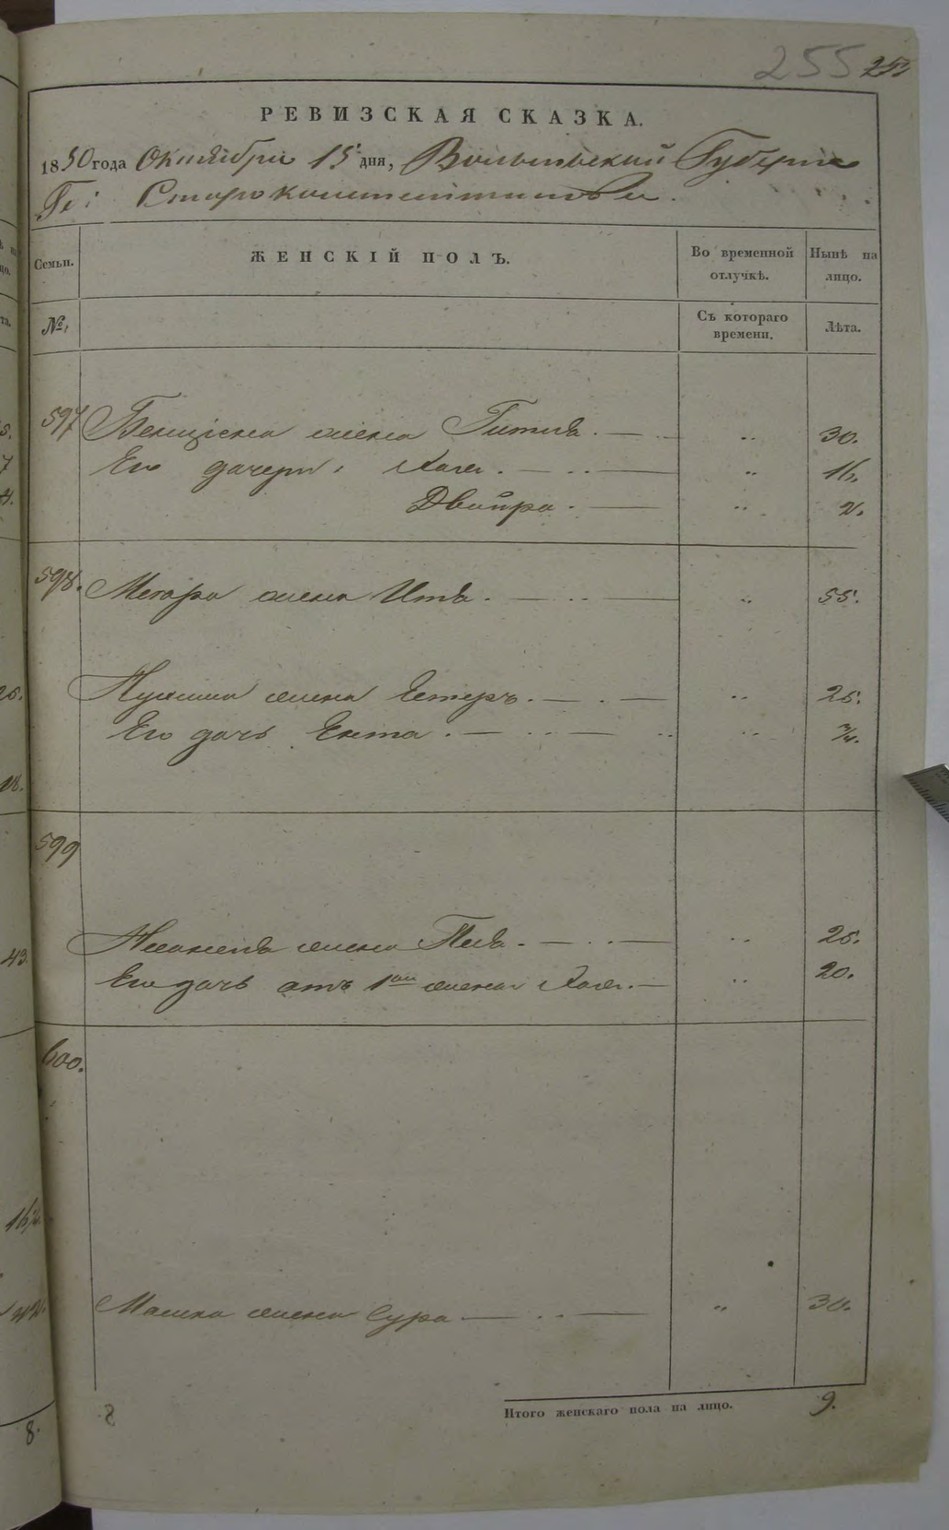 255
РЕВИЗСКАЯ СКАЗКА.
1850 года Октября 15 дня, Волынской Губернiи
Го: Староконстантинова.
Семьи. ЖЕНСКIЙ ПОЛЪ. Во временной отлучкѣ. Нынѣ на лицо.
№ Съ котораго времени. Лѣта.
597 жена Гитля. „ 30.
Его дочери: Хая. „ 16.
Двойра. „ 2.
598. Меера жена Итя. „ 55.
жена Естеръ. „ 25.
Его дочь Ента. „
599
жена „ 25.
Его дочь отъ 1ой жены Хая. „ 20.
600.
Мошка жена Сура „ 30.
Итого женскаго пола на лицо. 9.
8